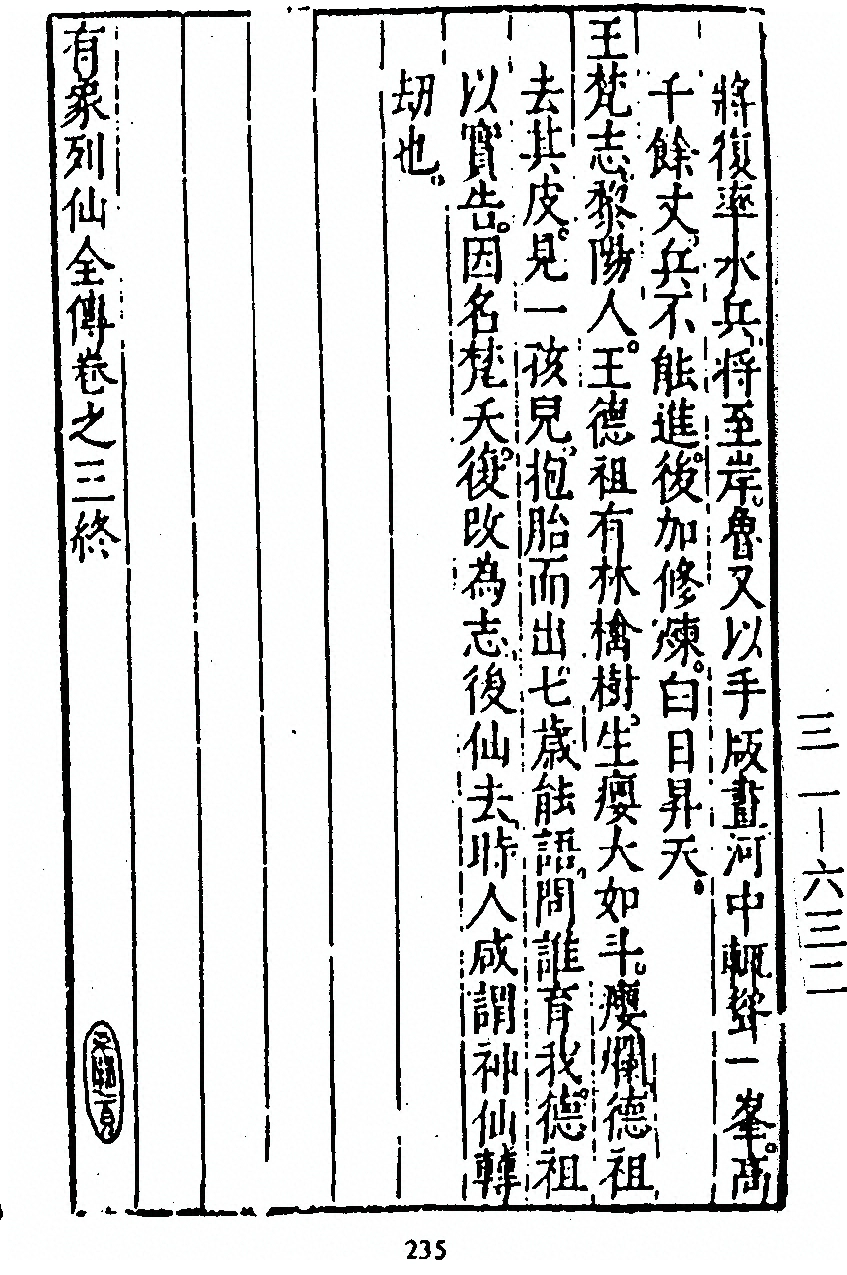 將復率水兵將至岸。魯又以手版畫河中輒聳一峯。高
千餘丈。兵不能進。後加修煉。白日昇天。
王梵志。黎陽人。王德祖有林檎樹。生癭大如斗。癭爛。德祖
去其皮。見一孩兒抱胎而出。七歲能語。問誰育我。德祖
以實告。因名梵天。後改為志。後仙去。時人咸謂神仙轉
劫也。
有象列仙全傳卷之三終
三 一—六三二
235